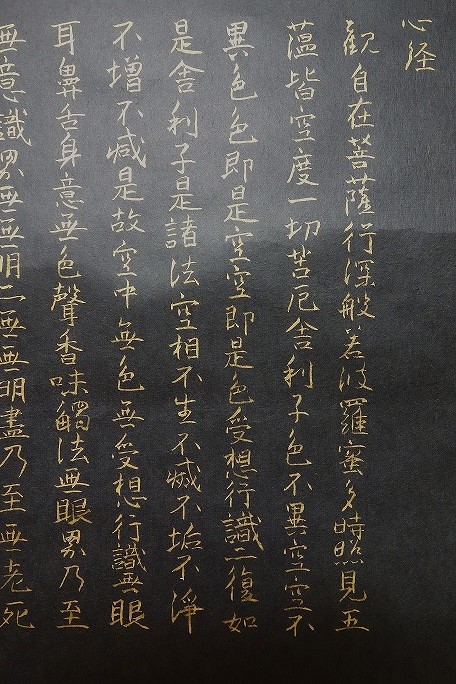 心经
觀自在菩薩行深般若波羅蜜多時照見五
蕴皆空度一切苦厄舍利子色不異空空不
異色色即是空空即是色受想行識二復如
是舍利子是諸法空相不生不滅不垢不淨
不增不减是故空中無色無受想行識無眼
耳鼻舌身意無色聲香味觸法無眼界乃至
無意識界無無明二無無明盡乃至無老死